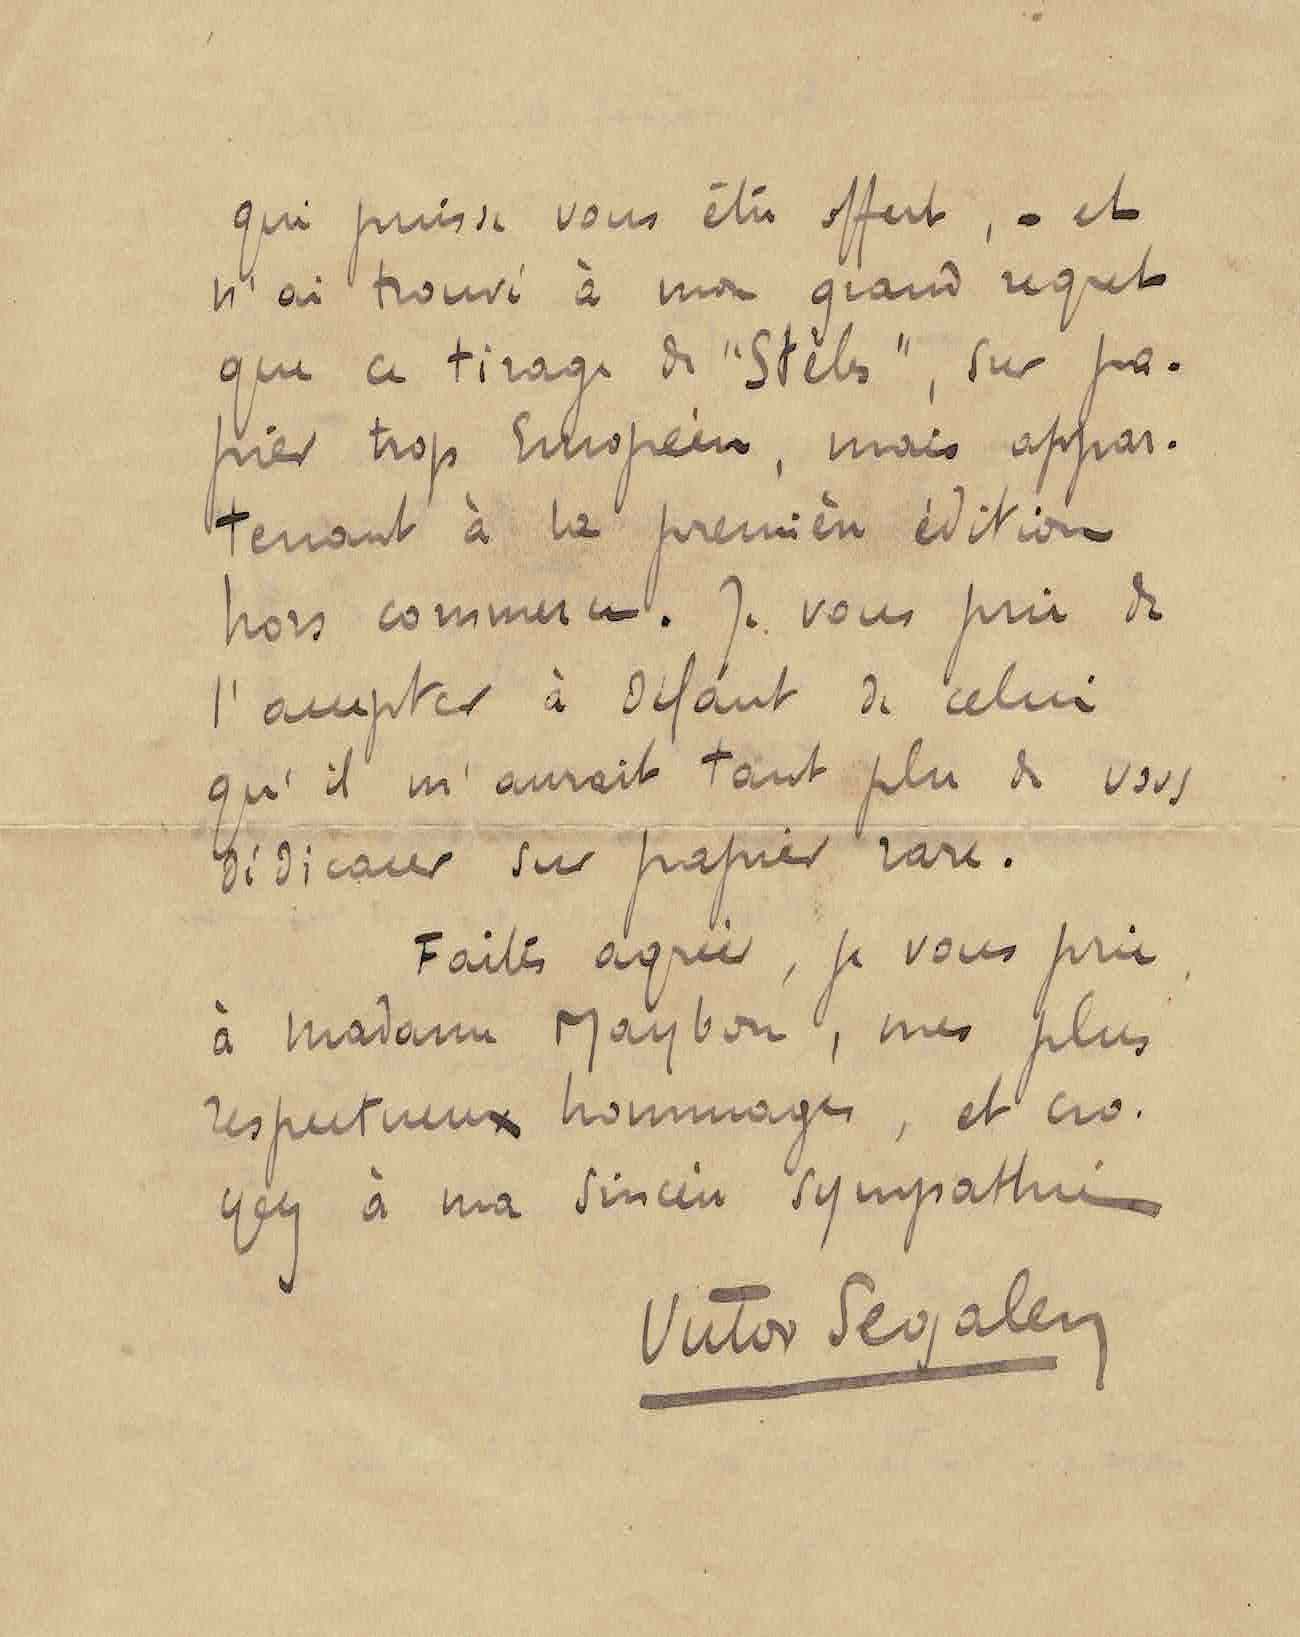 qui puisse vous être offert, - et
n'ai trouvé à mon grand regret
que ce tirage de "Stèles", sur pa-
pier trop Européen, mais appar-
tenant à la première édition
hors commerce. Je vous prie de
l'accepter à défaut de celui
qu'il m'aurait tant plu de vous
dédicacer sur papier rare.
Faites agréer, je vous prie,
à madame Maybon, mes plus
respectueux hommages, et cro-
yez à ma sincère sympathie
Victor Segalen